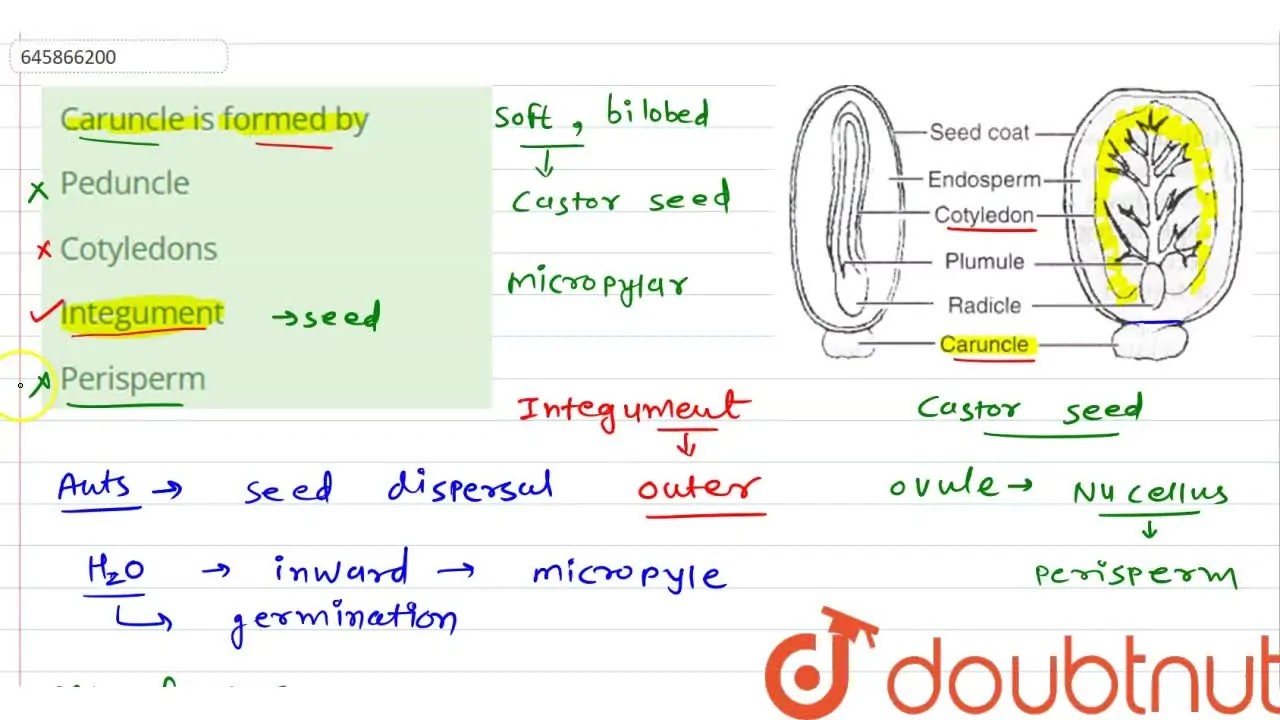 645866200
Caruncle is formed by
Peduncle
Cotyledons
Integument → seed
Perisperm
Soft, bilobed
Castor seed
Micropylar
Integument
outer
Seed coat
Endosperm
Cotyledon
Plumule
Radicle
Caruncle
Castor seed
ovule → Nucellus
Perisperm
Ants → seed dispersal
H2O → inward → micropyle
germination
doubtnut